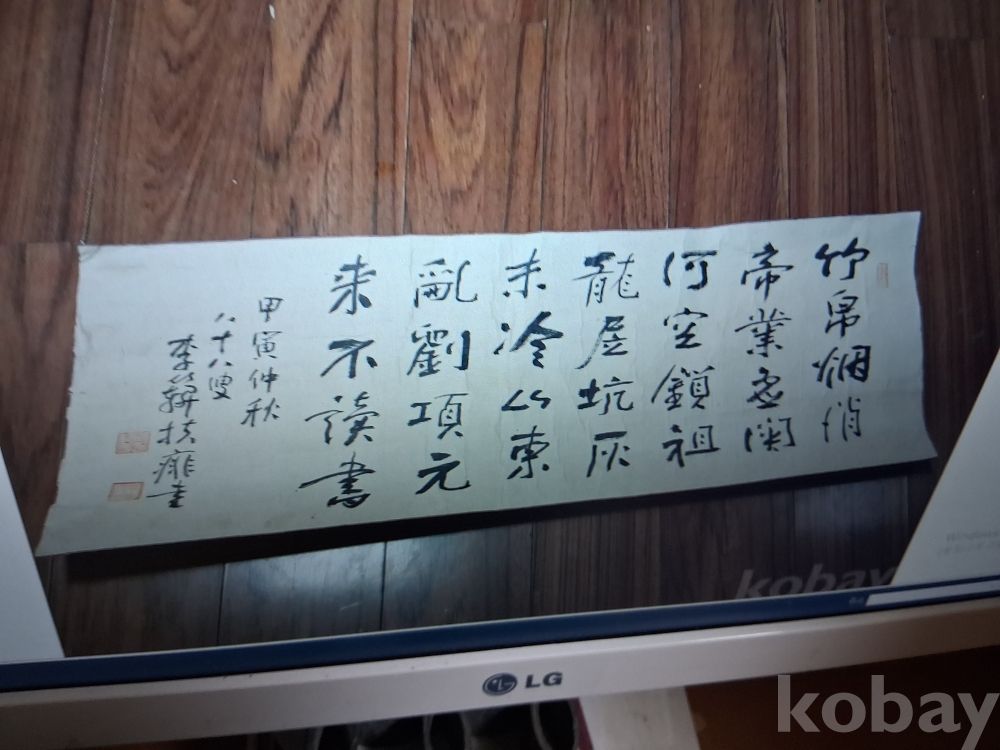 竹帛烟消
帝業虛関
河空鎖祖
龍居坑灰
未冷山東
亂劉項元
来不讀書
甲寅仲秋
八十八叟
李扶書
kobay
LG
kobay